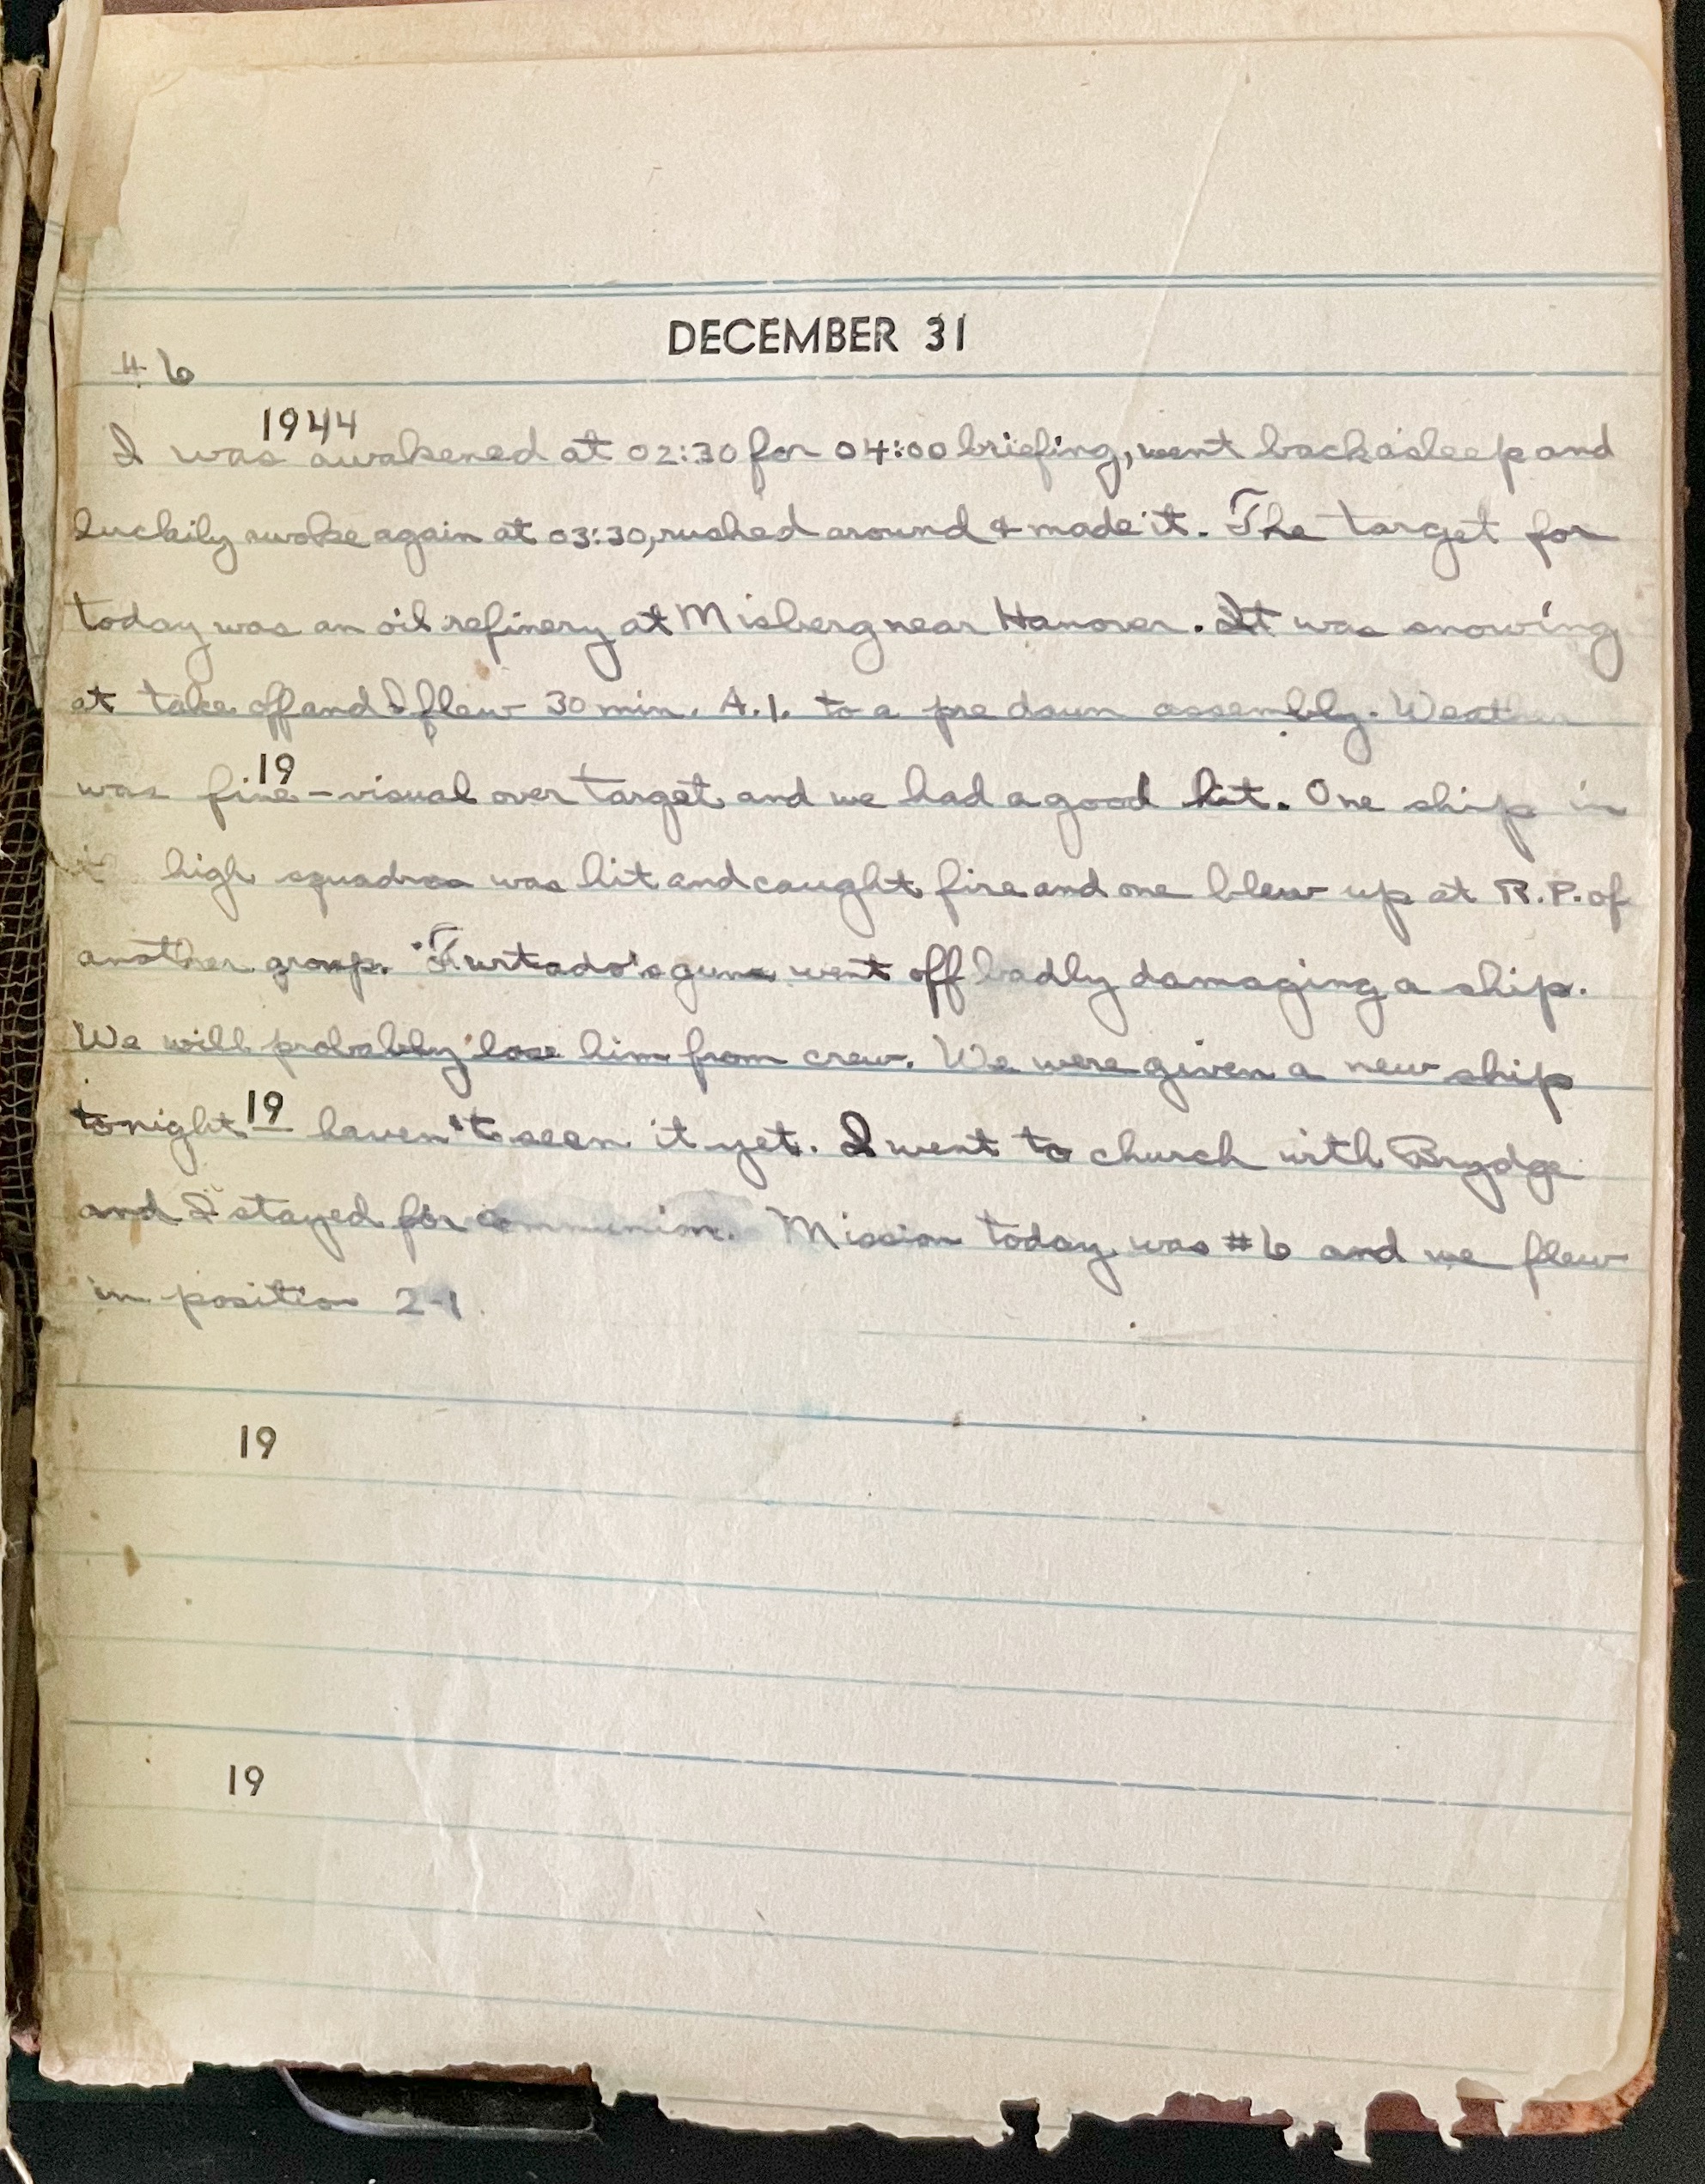 DECEMBER 31
#6
1944
I was awakened at 02:30 for 04:00 briefing, went back asleep and
luckily awoke again at 03:30, rushed around & made it. The target for
today was an oil refinery at Misberg near Hanover. It was snowing
at take off and I flew 30 min. A.I. to a pre dawn assembly. Weather
19
was fine - visual over target and we had a good hit. One ship in
high squadron was hit and caught fire and one blew up at R.P. of
another group. Furtado's guns went off badly damaging a ship.
We will probably lose him from crew. We were given a new ship
19
tonight - haven't seen it yet. I went to church with Brydge
and I stayed for communion. Mission today was #6 and we flew
in position 2-1.
19
19